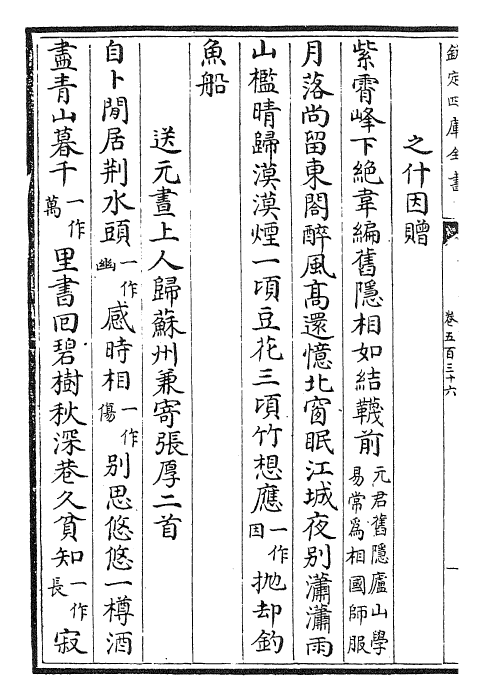 欽定四庫全書
卷五百三十六
一
之什因贈
紫霄峰下絶韋編舊隱相如結韈前元君舊隱廬山學易常為相國師服
月落尚留東閣醉風髙還憶北窗眠江城夜别瀟瀟雨
山檻晴歸漠漠煙一頃豆花三頃竹想應一作因抛却釣
魚船
送元晝上人歸蘇州兼寄張厚二首
自卜閒居荆水頭一作幽感時相一作傷别思悠悠一樽酒
盡青山暮千一作萬里書回碧樹秋深巷久貧知一作長寂